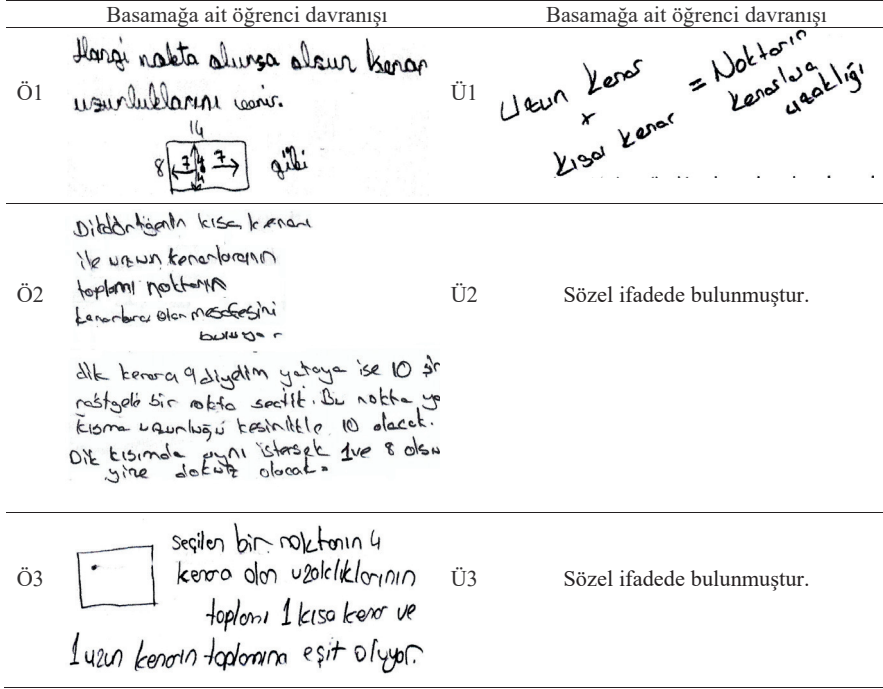 Basamağa ait öğrenci davranışı
Basamağa ait öğrenci davranışı
Ö1
Hangi nokta olursa olsun kenar
uzunluklarını verir.
14
8 7 7 gibi
Ü1
Uzun kenar
+
kısa kenar
= Noktanın
kenarlara
uzaklığı
Ö2
Dikdörtgenin kısa kenarı
ile uzun kenarlarının
toplamı noktanın
kenarlara olan mesafesini
buluyor
dik kenara 9 diyelim yataya ise 10
rastgele bir nokta seçtik. Bu nokta
kısma uzunluğu kesinlikle 10 olacak.
Dik kısımda aynı istersek 1 ve 8
yine dokuz olacak.
Ü2
Sözel ifadede bulunmuştur.
Ö3
Seçilen bir noktanın 4
kenara olan uzaklıklarının
toplamı 1 kısa kenar ve
1 uzun kenarın toplamına eşit oluyor.
Ü3
Sözel ifadede bulunmuştur.